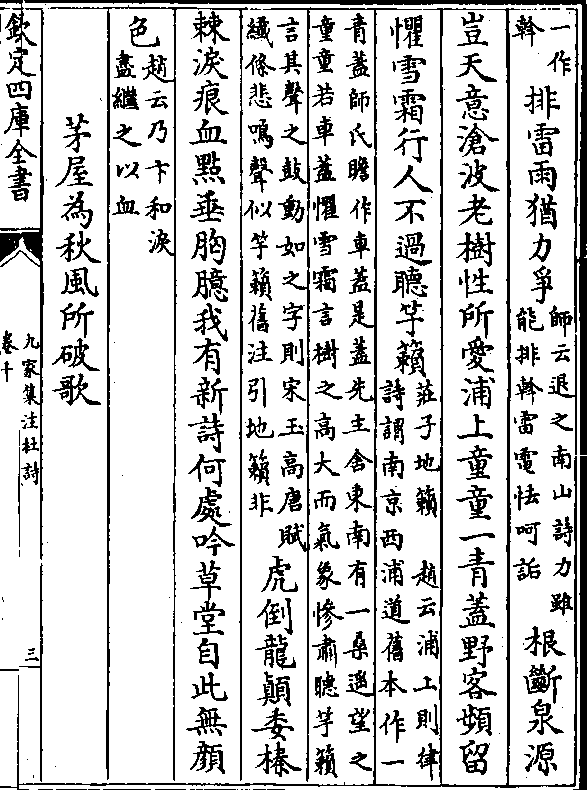 一作幹排雷雨猶力爭師云退之南山詩力雖能排幹雷電怯呵詬根斷泉源
豈天意滄波老樹性所愛浦上童童一青蓋野客頻留
懼雪霜行人不過聽竽籟莊子地籟 趙云浦上則律詩謂南京西浦道舊本作一
青蓋師氏瞻作車蓋是蓋先主舍東南有一桑遥望之
童童若車蓋懼雪霜言樹之高大而氣象慘肅聽竽籟
言其聲之鼓動如之字則宋玉高唐賦纖條悲鳴聲似竽籟舊注引地籟非虎倒龍顛委榛
棘淚痕血點垂胸臆我有新詩何處吟草堂自此無顔
色趙云乃卞和淚盡繼之以血
茅屋為秋風所破歌
欽定四庫全書
九家集注杜詩
卷十
三